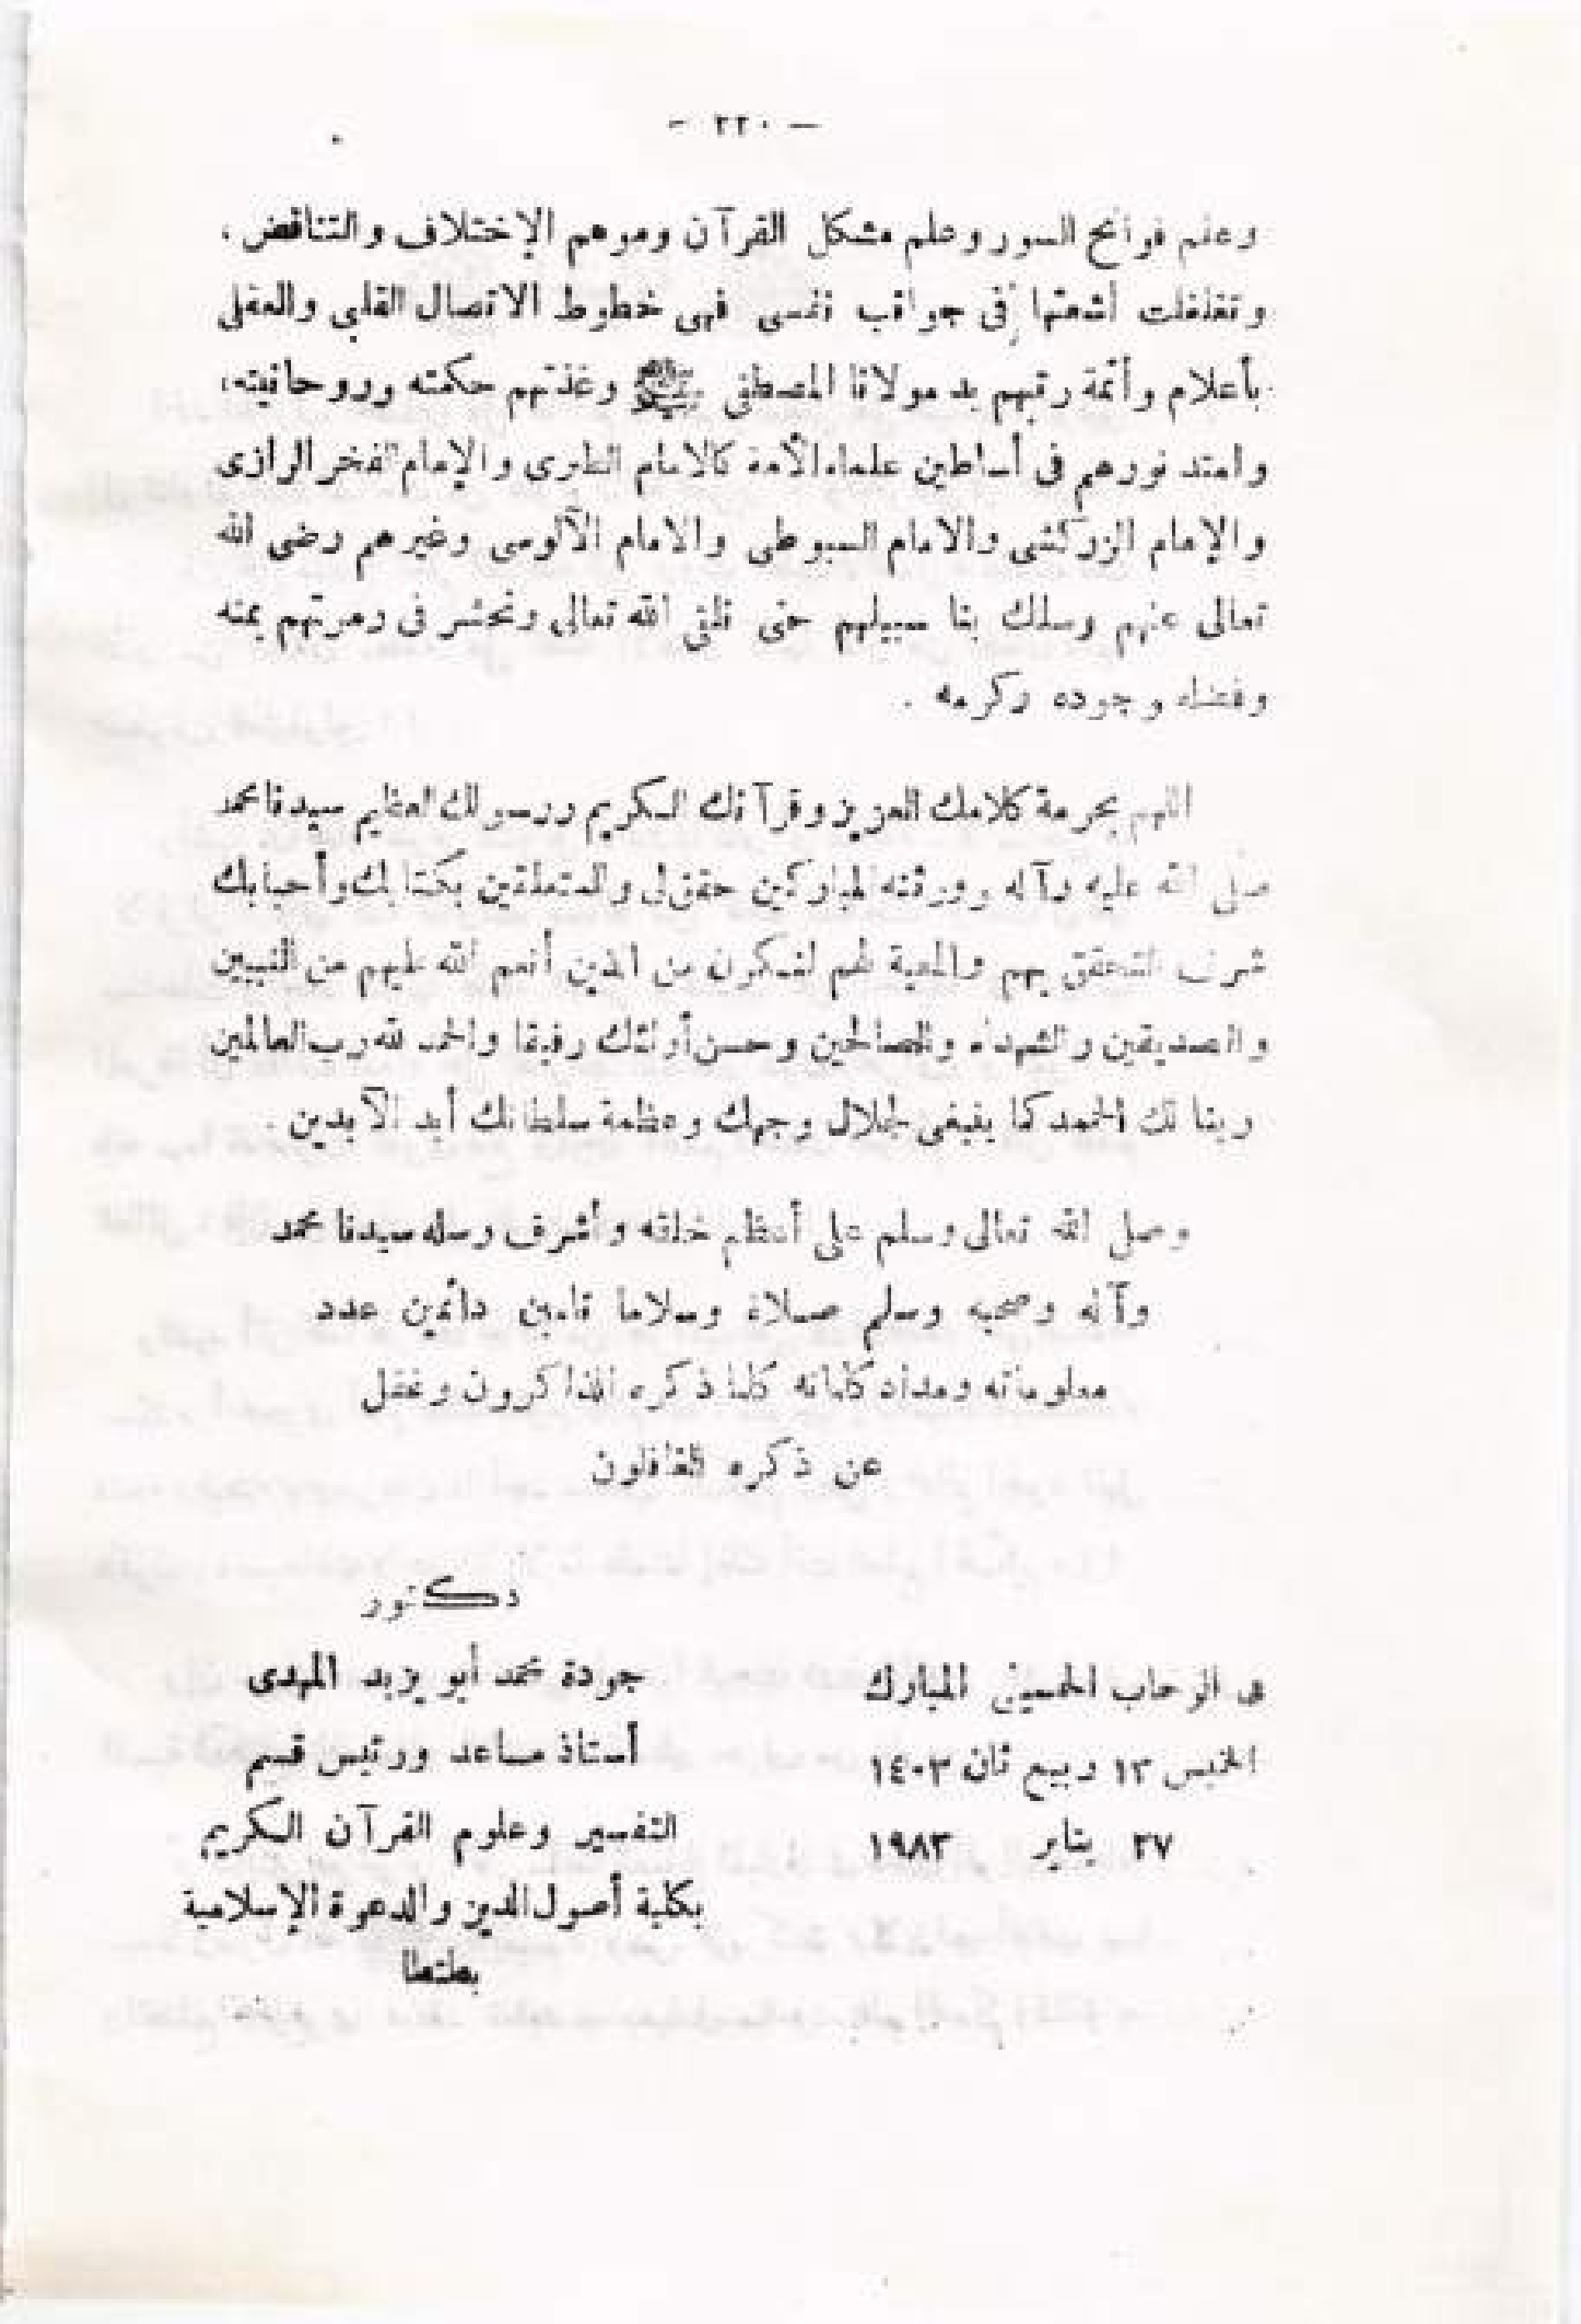 — ٢٢٠ —
وعلم فواتح السور وعلم مشكل القرآن وموهم الإختلاف والتناقض ،
وتغلغلت أشعتها فى جوانب نفسى فهى خطوط الاتصال القلبى والعقلى
بأعلام وأئمة ربتهم يد مولانا المصطفى ﷺ وغذتهم حكمته وروحانيته ،
وامتد نورهم فى أساطين علماء الأمة كالامام الطبرى والإمام الفخر الرازى
والإمام الزركشى والامام السيوطى والامام الآلوسى وغيرهم رضى الله
تعالى عنهم وسلك بنا سبيلهم حتى نلقى الله تعالى ونحشر فى زمرتهم بمنه
وفضله وجوده وكرمه .
اللهم بحرمة كلامك العزيز وقرآنك الكريم ورسولك العظيم سيدنا محمد
صلى الله عليه وآله وورثته المباركين حقق لى والمتعلقين بكتابك وأحبابك
شرف التحقق بهم والمعية لهم لنكون من الذين أنعم الله عليهم من النبيين
والصديقين والشهداء والصالحين وحسن أولئك رفيقا والحمد لله رب العالمين
ربنا لك الحمد كما ينبغى لجلال وجهك وعظمة سلطانك أبد الآبدين .
وصلى الله تعالى وسلم على أعظم خلقه وأشرف رسله سيدنا محمد
وآله وصحبه وسلم صلاة وسلاما تامين دائمين عدد
معلوماته ومداد كلماته كلما ذكره الذاكرون وغفل
عن ذكره الغافلون
دكتور
جودة محمد أبو يزيد المهدى
أستاذ مساعد ورئيس قسم
التفسير وعلوم القرآن الكريم
بكلية أصول الدين والدعوة الإسلامية
بطنطا
فى الرحاب الحسينى المبارك
الخميس ١٣ ربيع ثان ١٤٠٣
٢٧ يناير ١٩٨٣